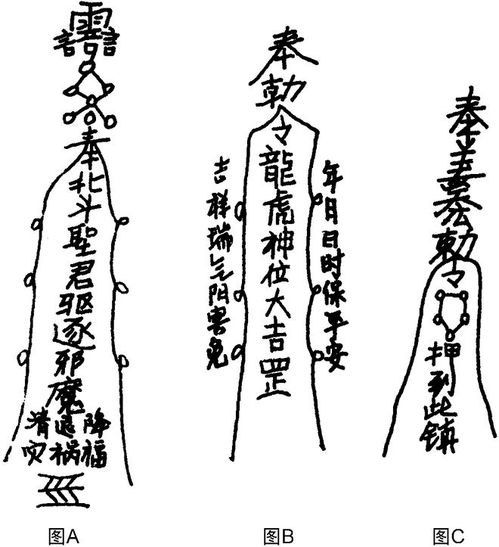 奉北斗聖君驱逐邪魔
降福
退祸
消灾
图A
奉勅令龍虎神位大吉罡
年月日时保平安
吉祥瑞气阳害免
图B
奉姜太公勅令
押到此镇
图C